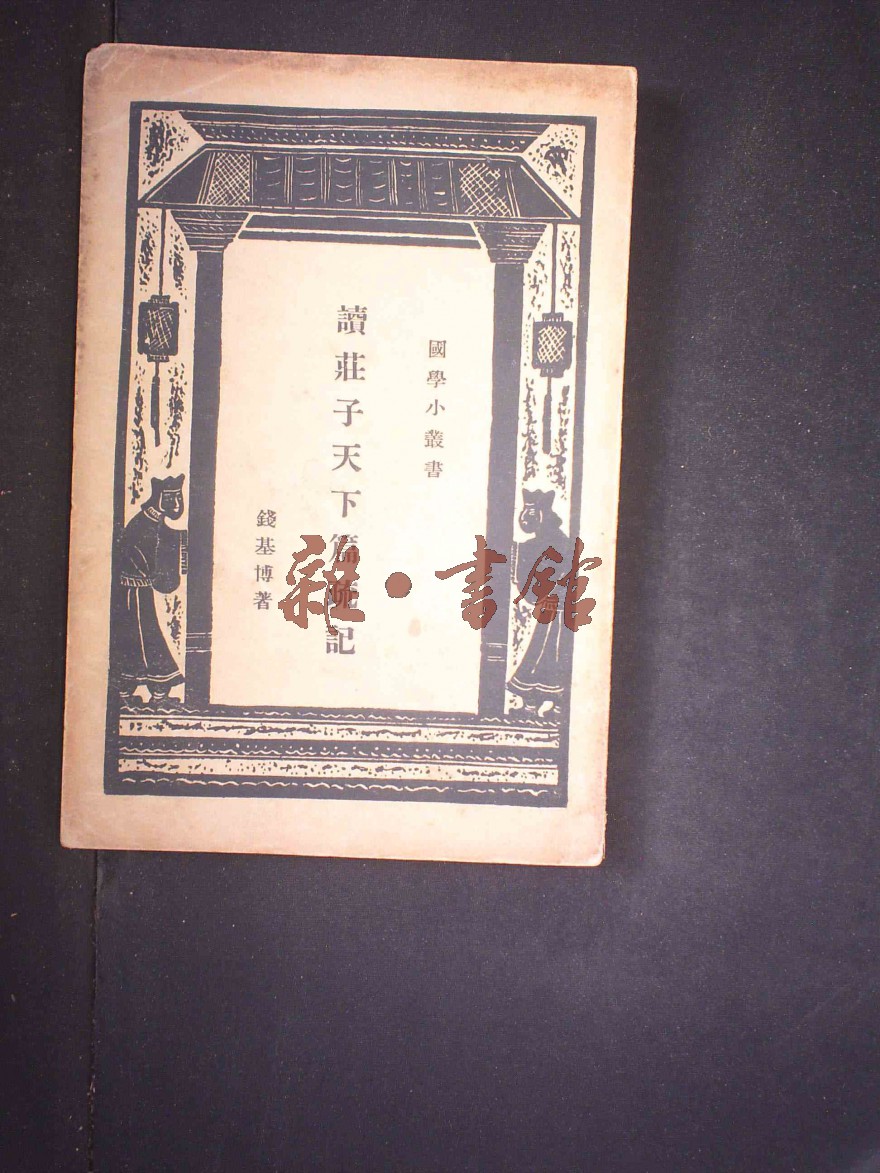 國學小叢書
讀莊子天下篇疏記
錢基博著
雜·書館